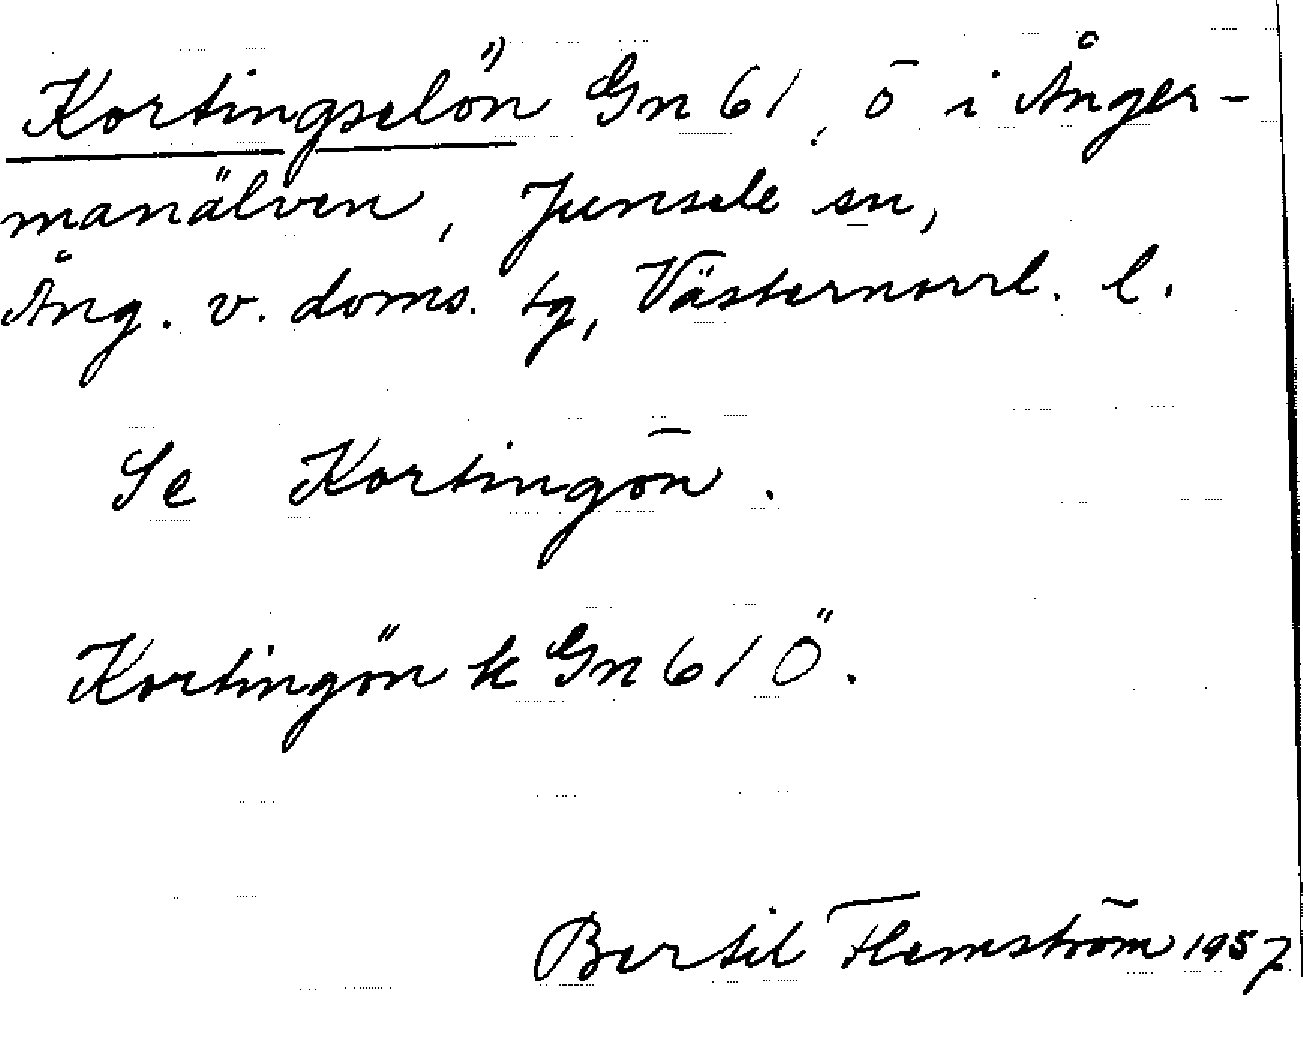 Kortingselön Gn 61, ö i Ånger-
manälven, Junsele sn,
Ång. v. doms. tg, Västernorrl. l.
Se Kortingön.
Kortingön k Gn 61 Ö.
Bertil Flemström 1957